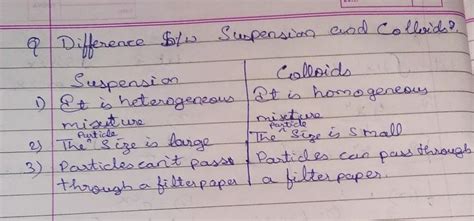 Q Difference b/w Suspension and Colloids?
Suspension Colloids
1) It is heterogeneous It is homogeneous
mixture mixture
2) The Particle Size is large The Particle Size is Small
3) Particles can't pass Particles can pass through
through a filterpaper a filter paper.